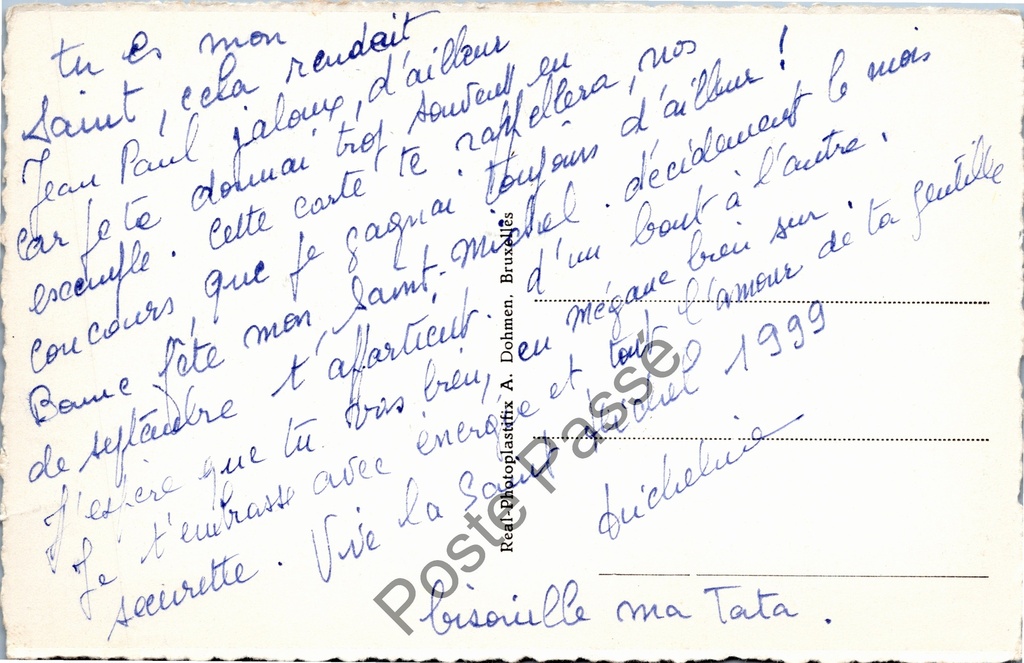 tu es mon
Saint, cela rendait
Jean Paul jaloux, d'ailleur
car je te donnai trop souvent en
exemple. Cette carte te rappellera, nos
concours, que je gagnai toujours d'ailleur !
Bonne fête mon, Saint-Michel. décidement le mois
de septembre t'appartient. d'un bout à l'autre.
J'espère que tu vas bien, en mégane bien sur.
Je t'embrasse avec énergie et tout l'amour de ta gentille
seurette. Vive la Saint Michel 1999
Micheline
bisouille ma Tata.
Real-Photoplastifix A. Dohmen, Bruxelles
Poste Passé